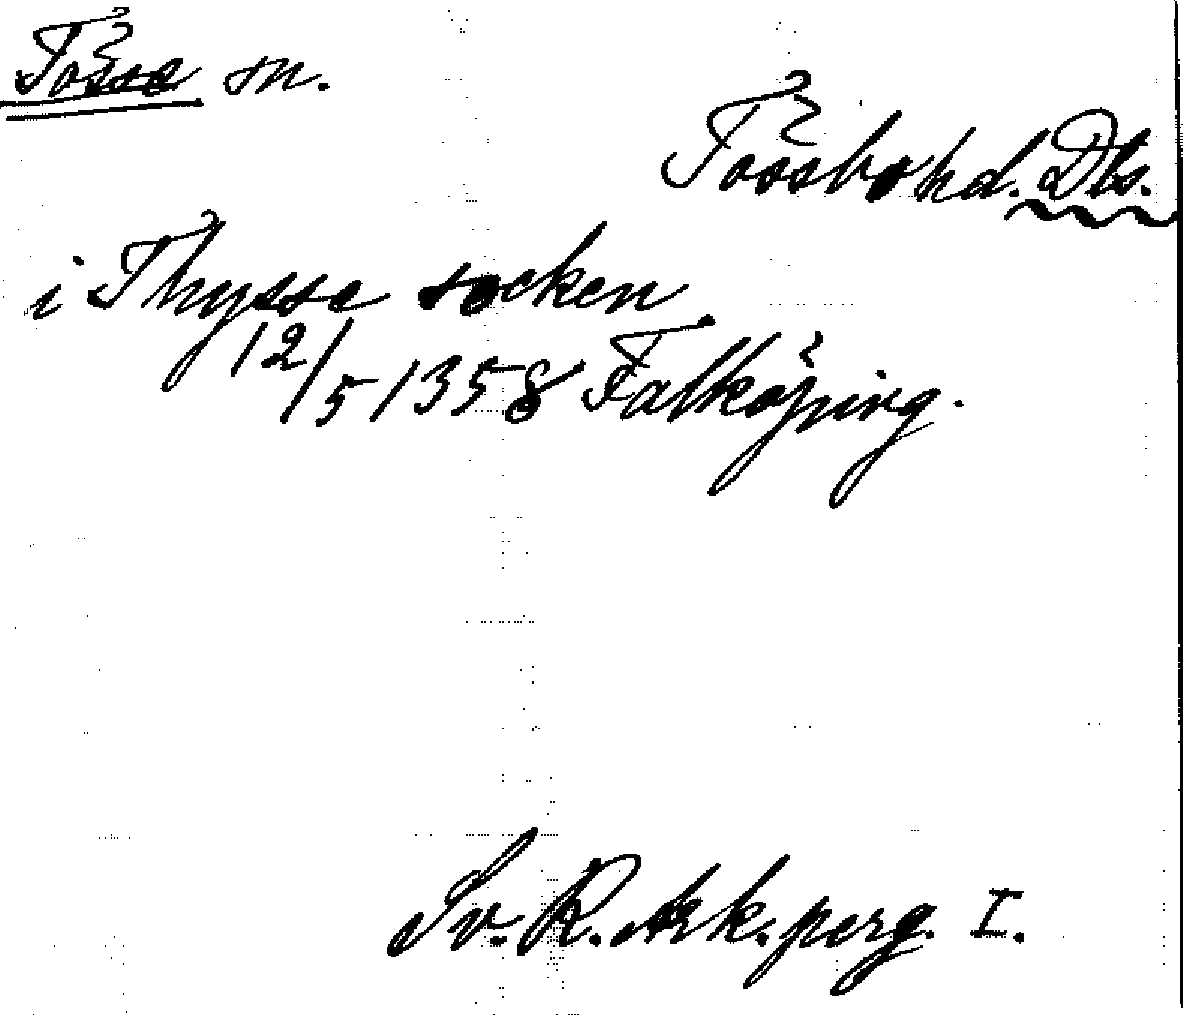 Tösse sn.
Tössbo hd. Dls.
i Thysse socken
12/5 1358 Falköping.
Sv. R. Ark. perg. I.